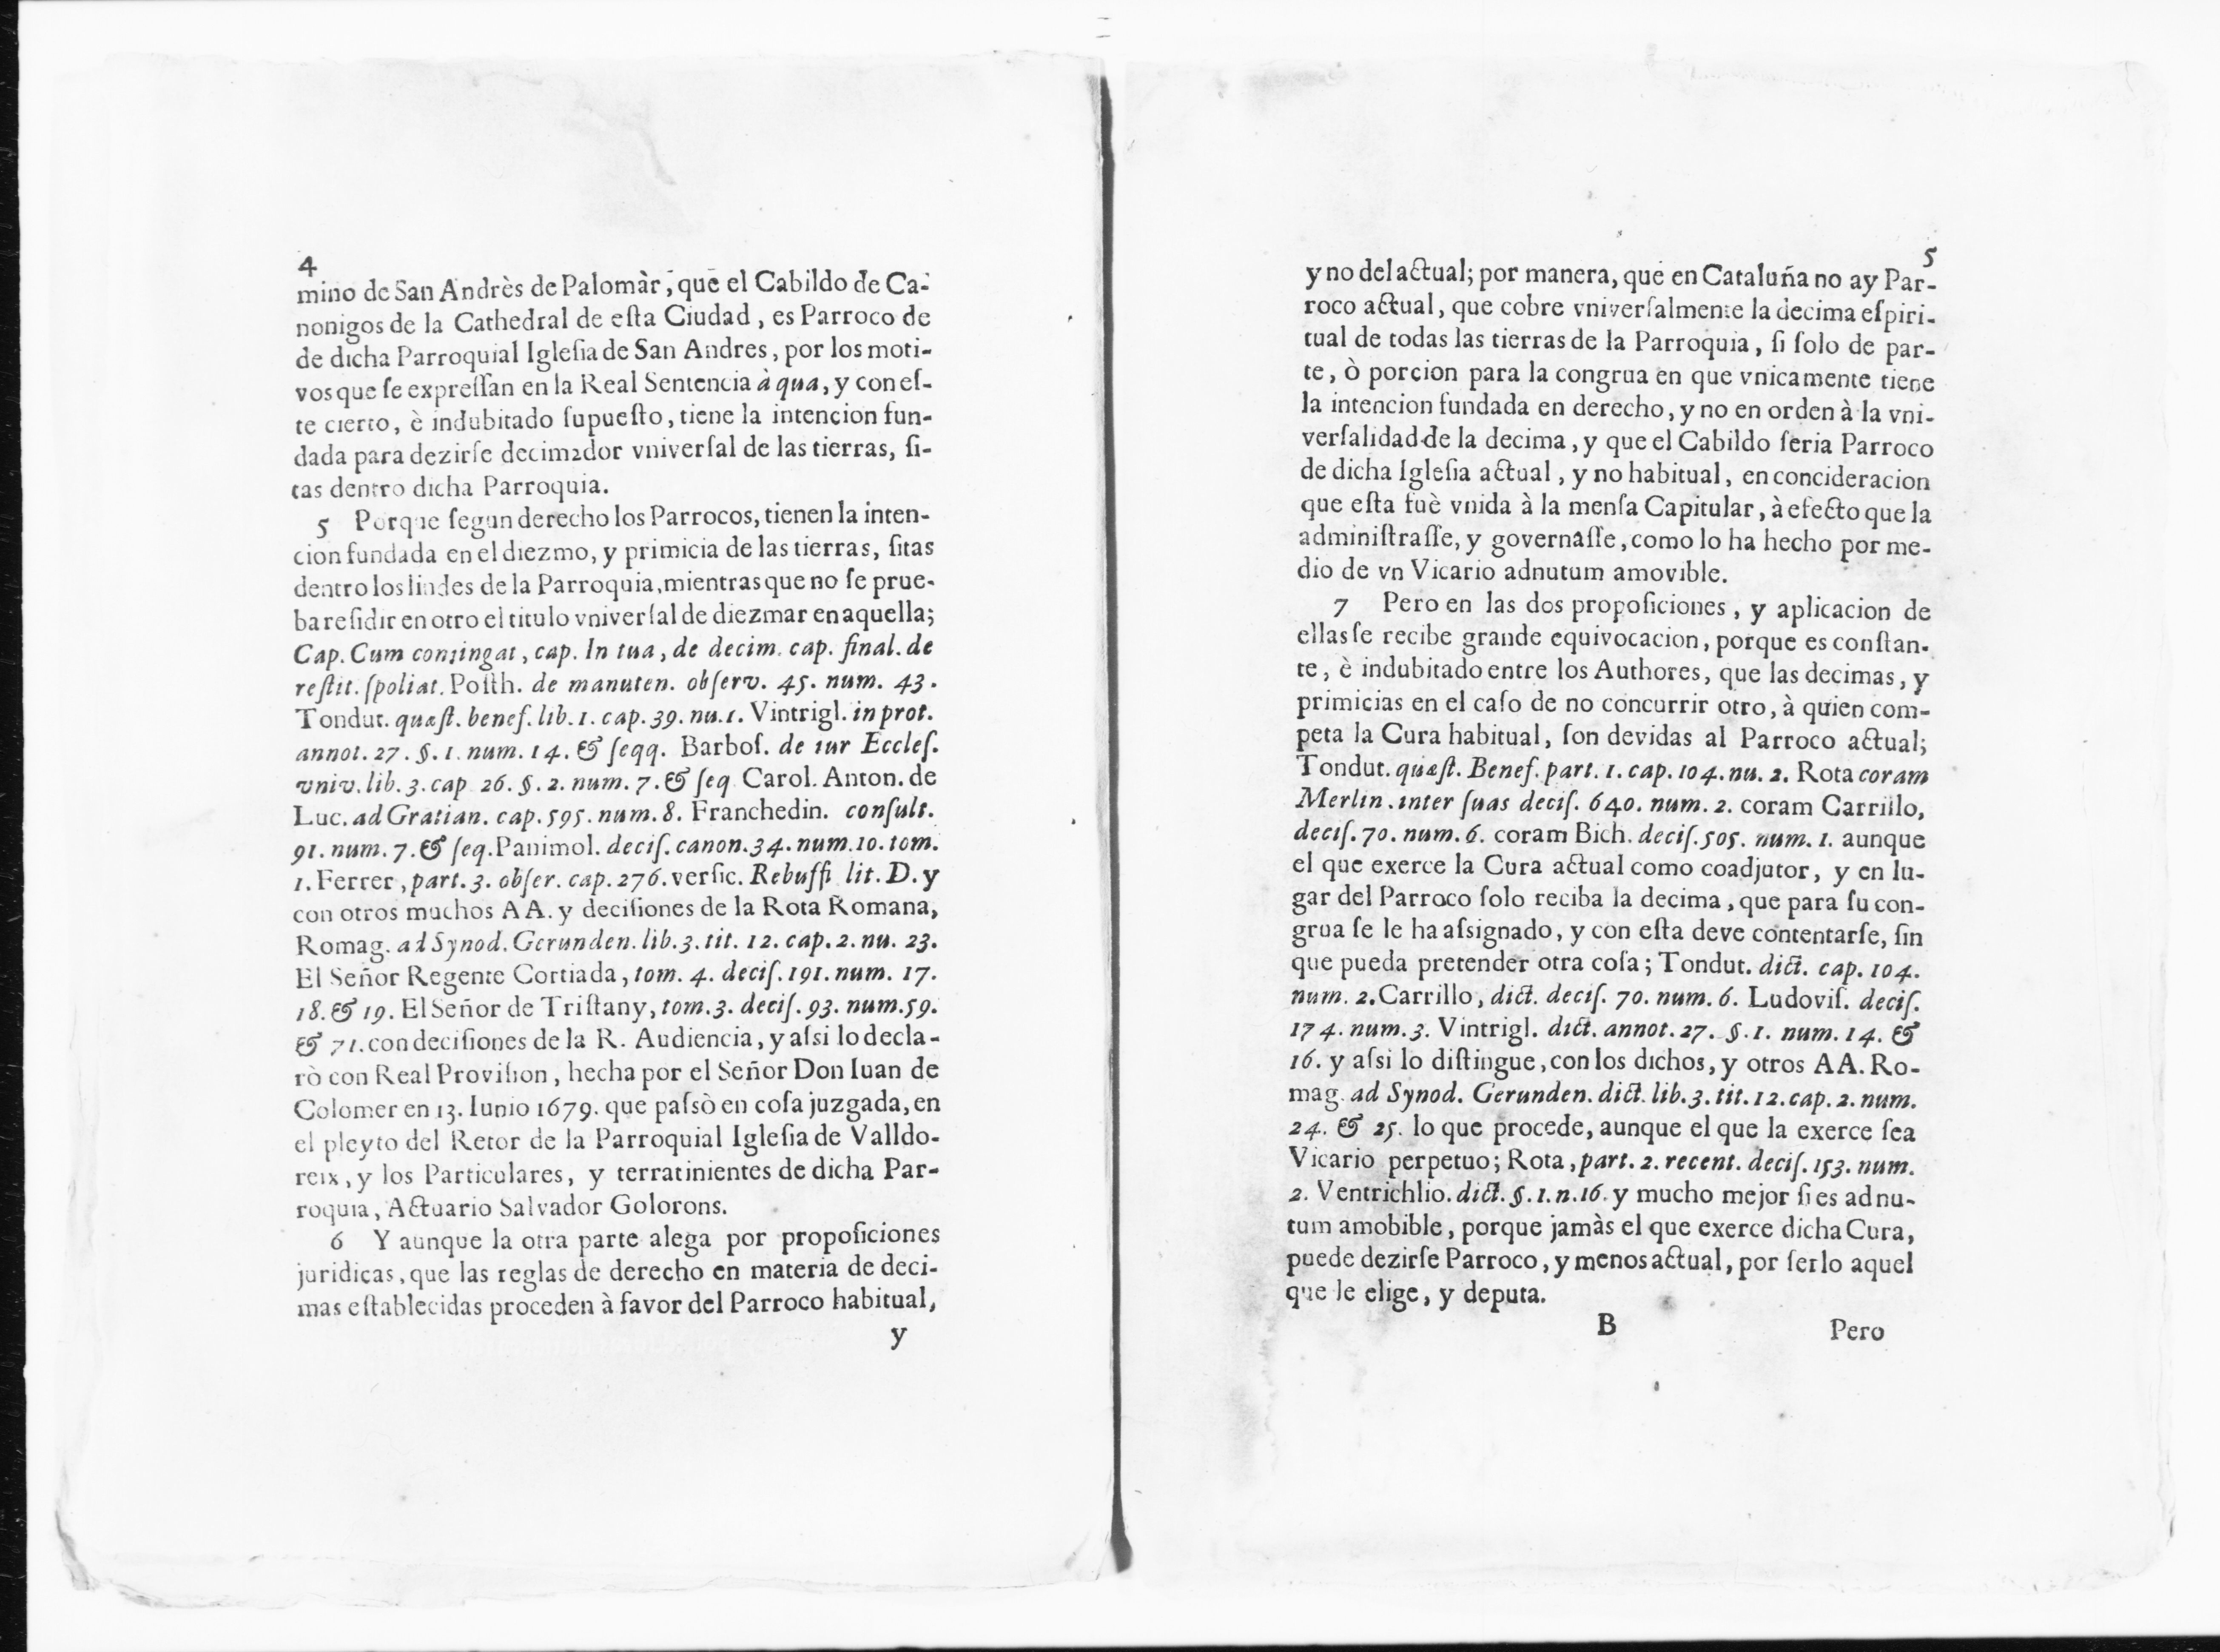 4
mino de San Andrès de Palomàr, que el Cabildo de Ca-
nonigos de la Cathedral de eſta Ciudad, es Parroco de
de dicha Parroquial Igleſia de San Andres, por los moti-
vos que ſe expreſſan en la Real Sentencia à qua, y con eſ-
te cierto, è indubitado ſupueſto, tiene la intencion fun-
dada para dezirſe decimador vniverſal de las tierras, ſi-
tas dentro dicha Parroquia.
5 Porque ſegun derecho los Parrocos, tienen la inten-
cion fundada en el diezmo, y primicia de las tierras, ſitas
dentro los lindes de la Parroquia, mientras que no ſe prue-
ba reſidir en otro el titulo vniverſal de diezmar en aquella;
Cap. Cum contingat, cap. In tua, de decim. cap. final. de
reſtit. ſpoliat. Poſth. de manuten. obſerv. 45. num. 43.
Tondut. quæſt. benef. lib. 1. cap. 39. nu. 1. Vintrigl. in prot.
annot. 27. §. 1. num. 14. & ſeqq. Barboſ. de iur Eccleſ.
univ. lib. 3. cap 26. §. 2. num. 7. & ſeq Carol. Anton. de
Luc. ad Gratian. cap. 595. num. 8. Franchedin. conſult.
91. num. 7. & ſeq. Panimol. deciſ. canon. 34. num. 10. tom.
1. Ferrer, part. 3. obſer. cap. 276. verſic. Rebuffi lit. D. y
con otros muchos AA. y deciſiones de la Rota Romana,
Romag. ad Synod. Gerunden. lib. 3. tit. 12. cap. 2. nu. 23.
El Señor Regente Cortiada, tom. 4. deciſ. 191. num. 17.
18. & 19. El Señor de Triſtany, tom. 3. deciſ. 93. num. 59.
& 71. con deciſiones de la R. Audiencia, y aſsi lo decla-
rò con Real Proviſion, hecha por el Señor Don Iuan de
Colomer en 13. Iunio 1679. que paſsò en coſa juzgada, en
el pleyto del Retor de la Parroquial Igleſia de Valldo-
reix, y los Particulares, y terratinientes de dicha Par-
roquia, Actuario Salvador Golorons.
6 Y aunque la otra parte alega por propoſiciones
juridicas, que las reglas de derecho en materia de deci-
mas eſtablecidas proceden à favor del Parroco habitual,
y
5
y no del actual; por manera, que en Cataluña no ay Par-
roco actual, que cobre vniverſalmente la decima eſpiri-
tual de todas las tierras de la Parroquia, ſi ſolo de par-
te, ò porcion para la congrua en que vnicamente tiene
la intencion fundada en derecho, y no en orden à la vni-
verſalidad de la decima, y que el Cabildo ſeria Parroco
de dicha Igleſia actual, y no habitual, en concideracion
que eſta fuè vnida à la menſa Capitular, à efecto que la
adminiſtraſſe, y governaſſe, como lo ha hecho por me-
dio de vn Vicario adnutum amovible.
7 Pero en las dos propoſiciones, y aplicacion de
ellas ſe recibe grande equivocacion, porque es conſtan-
te, è indubitado entre los Authores, que las decimas, y
primicias en el caſo de no concurrir otro, à quien com-
peta la Cura habitual, ſon devidas al Parroco actual;
Tondut. quæſt. Benef. part. 1. cap. 104. nu. 2. Rota coram
Merlin. inter ſuas deciſ. 640. num. 2. coram Carrillo,
deciſ. 70. num. 6. coram Bich. deciſ. 505. num. 1. aunque
el que exerce la Cura actual como coadjutor, y en lu-
gar del Parroco ſolo reciba la decima, que para ſu con-
grua ſe le ha aſsignado, y con eſta deve contentarſe, ſin
que pueda pretender otra coſa; Tondut. dict. cap. 104.
num. 2. Carrillo, dict. deciſ. 70. num. 6. Ludoviſ. deciſ.
174. num. 3. Vintrigl. dict. annot. 27. §. 1. num. 14. &
16. y aſsi lo diſtingue, con los dichos, y otros AA. Ro-
mag. ad Synod. Gerunden. dict. lib. 3. tit. 12. cap. 2. num.
24. & 25. lo que procede, aunque el que la exerce ſea
Vicario perpetuo; Rota, part. 2. recent. deciſ. 153. num.
2. Ventrichlio. dict. §. 1. n. 16. y mucho mejor ſi es adnu-
tum amobible, porque jamàs el que exerce dicha Cura,
puede dezirſe Parroco, y menos actual, por ſerlo aquel
que le elige, y deputa.
B Pero